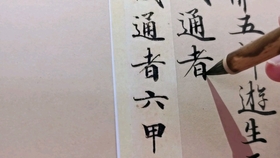 五 遊生
通者
通者六甲